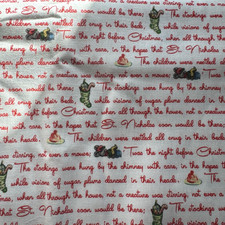 that St. Nicholas soon would be there. The stockings were
The children were nestled all snug in their beds,
a mouse; 'Twas the night before Christmas,
were hung by the chimney with care, in the hopes that St. Nicholas
sugar plums danced in their heads. The children were nestled
the house, not a creature was stirring, not even a mouse;
The stockings were hung by the chimney
all snug in their beds, while visions of sugar plums danced in
'Twas the night before Christmas, when all through the house, not a
with care, in the hopes that St. Nicholas soon would be there.
their heads. The children were nestled all snug in their beds,
was stirring, not even a mouse; 'Twas the night before Christmas,
The stockings were hung by the chimney with care, in the
while visions of sugar plums danced in their heads.
all through the house, not a creature was stirring, not even a
that St. Nicholas soon would be there. The stockings
nestled all snug in their beds, while visions of